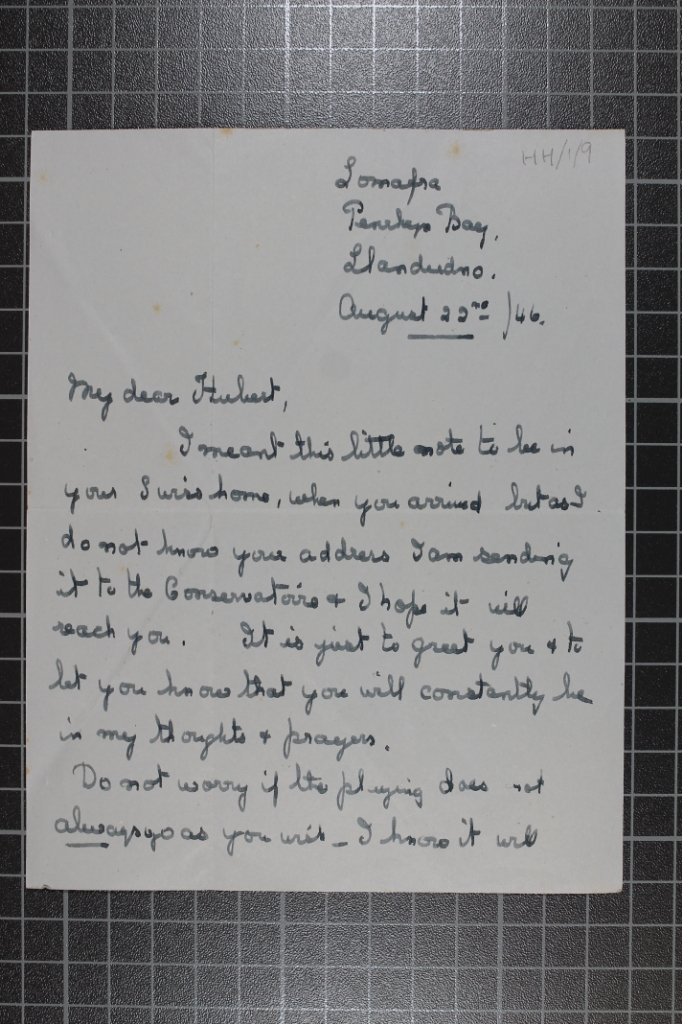 HH/1/9
Lomafra
Penrhyn Bay,
Llandudno.
August 22nd /46.
My dear Hubert,
I meant this little note to be in
your Swiss home, when you arrived but as I
do not know your address I am sending
it to the Conservatoire & I hope it will
reach you. It is just to greet you & to
let you know that you will constantly be
in my thoughts & prayers.
Do not worry if the playing does not
always go as you wish - I know it will